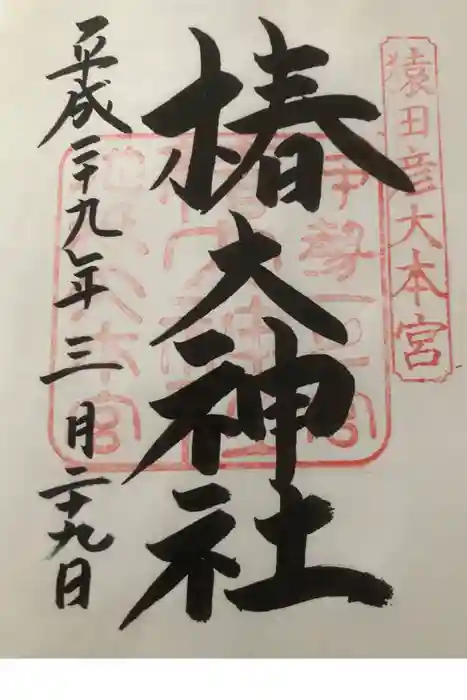 猿田彦大本宮
椿大神社
伊勢一之宮
椿大神社
地祇大本宮
平成二十九年三月二十九日